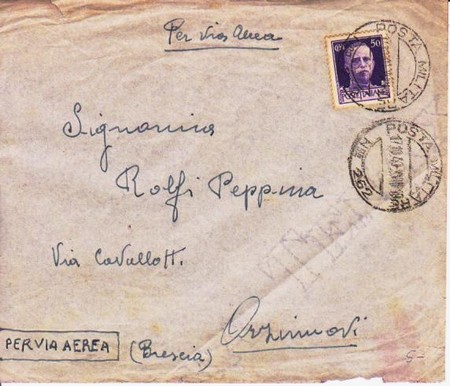 Per via Aerea
50
POSTE ITALIANE
POSTA MILITARE
POSTA MILITARE
N. 262
Signorina
Rolfi Peppina
Via Cavallotti.
Orzinuovi
PER VIA AEREA
(Brescia)